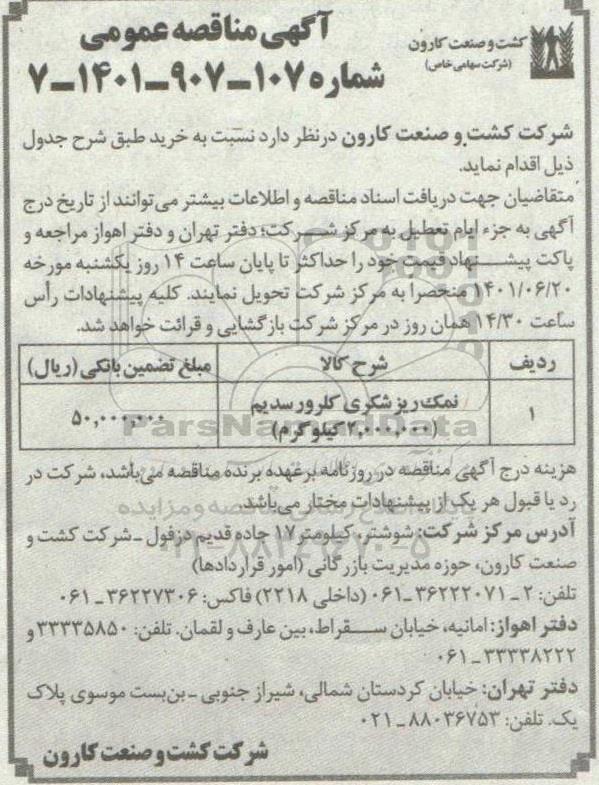 آگهی مناقصه عمومی
کشت و صنعت کارون
(شرکت سهامی خاص)
شماره ۱۰۷-۹۰۷-۱۴۰۱-۷
شرکت کشت و صنعت کارون درنظر دارد نسبت به خرید طبق شرح جدول
ذیل اقدام نماید.
متقاضیان جهت دریافت اسناد مناقصه و اطلاعات بیشتر می‌توانند از تاریخ درج
آگهی به جزء ایام تعطیل به مرکز شرکت؛ دفتر تهران و دفتر اهواز مراجعه و
پاکت پیشنهاد قیمت خود را حداکثر تا پایان ساعت ۱۴ روز یکشنبه مورخه
۱۴۰۱/۰۶/۲۰ منحصراً به مرکز شرکت تحویل نمایند. کلیه پیشنهادات رأس
ساعت ۱۴/۳۰ همان روز در مرکز شرکت بازگشایی و قرائت خواهد شد.
ردیف شرح کالا مبلغ تضمین بانکی (ریال)
۱ نمک ریز شکری کلرور سدیم ۵۰,۰۰۰,۰۰۰
(۲,۰۰۰,۰۰۰ کیلوگرم)
ParsNamadData
هزینه درج آگهی مناقصه در روزنامه برعهده برنده مناقصه می‌باشد، شرکت در
رد یا قبول هر یک از پیشنهادات مختار می‌باشد.
آدرس مرکز شرکت: شوشتر، کیلومتر ۱۷ جاده قدیم دزفول - شرکت کشت و
صنعت کارون، حوزه مدیریت بازرگانی (امور قراردادها)
تلفن: ۲ - ۳۶۲۲۲۰۷۱-۰۶۱ (داخلی ۲۲۱۸) فاکس: ۳۶۲۲۷۳۰۶-۰۶۱
دفتر اهواز: امانیه، خیابان سقراط، بین عارف و لقمان. تلفن: ۳۳۳۳۵۸۵۰ و
۳۳۳۳۸۲۲۲-۰۶۱
دفتر تهران: خیابان کردستان شمالی، شیراز جنوبی - بن‌بست موسوی پلاک
یک. تلفن: ۸۸۰۳۶۷۵۳-۰۲۱
شرکت کشت و صنعت کارون